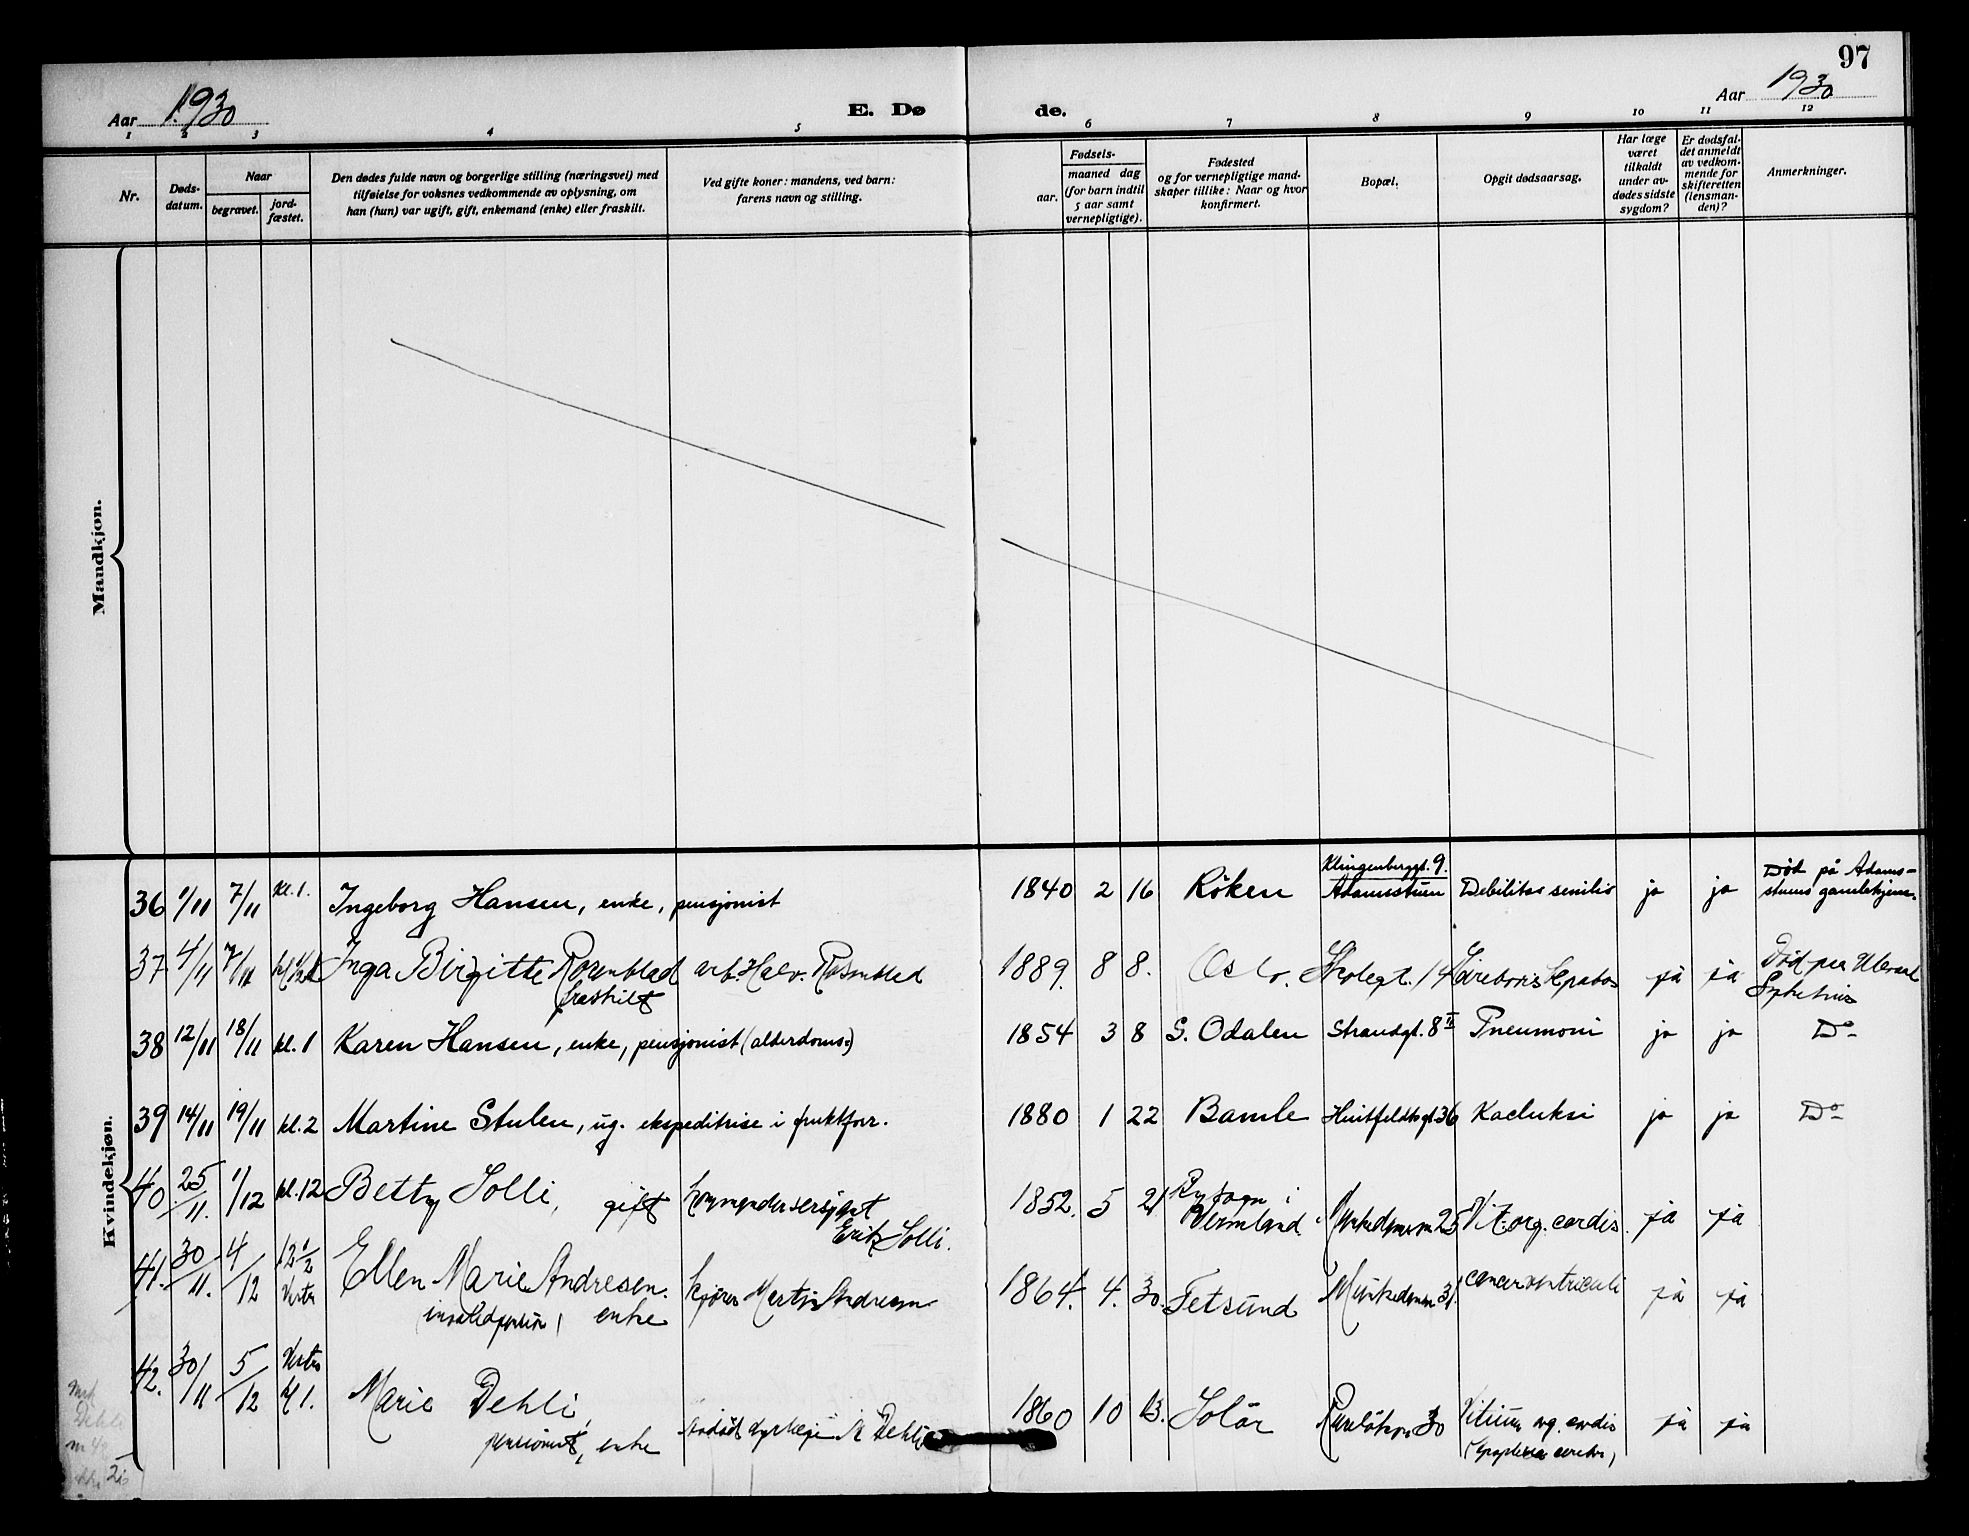 97
Aar 1930
E. Dø
de.
Aar 1930
1 2 3 4 5 6 7 8 9 10 11 12
Nr.
Døds-
datum.
Naar
begravet.
jord-
fæstet.
Den dødes fulde navn og borgerlige stilling (næringsvei) med
tilføielse for voksnes vedkommende av oplysning, om
han (hun) var ugift, gift, enkemand (enke) eller fraskilt.
Ved gifte koner: mandens, ved barn:
farens navn og stilling.
Fødsels-
aar.
maaned dag
(for barn indtil
5 aar samt
vernepligtige).
Fødested
og for vernepligtige mand-
skaper tillike: Naar og hvor
konfirmert.
Bopæl.
Opgit dødsaarsag.
Har læge
været
tilkaldt
under av-
dødes sidste
sygdom?
Er dødsfal-
det anmeldt
av vedkom-
mende for
skifteretten
(lensman-
den)?
Anmerkninger.
Mandkjøn.
Kvindekjøn.
36 1/11 7/11 kl. 1. Ingeborg Hansen, enke, pensjonist 1840 2 16 Röken Klingenberggt. 9. Adamsstuen Debilitas senilis ja ja Död på Adams-
stuens gamlehjem.
37 4/11 7/11 Inga Birgitte Rosenblad arb. Halv. Rosenblad 1889. 8 8. Oslo. Skolegt. 14 ja ja Död paa Ulevaal
fraskilt Sykehus
38 12/11 18/11 kl. 1 Karen Hansen, enke, pensjonist (alderdoms-) 1854 3 8 S. Odalen Strandgt. 8 II Pneumoni ja ja Do
39 14/11 19/11 kl. 2 Martine Stulen, ug. ekspeditrise i fruktforr. 1880 1 22 Bamle Huitfeldtsgt. 36 Kacluksi ja ja Do
40 25/11. 1/12 kl. 12 Betty Solli, gift
Erik Solli. 1852. 5 21 i
Vermland. Munkedamsvn 25 Vit. org. cordis. ja ja
41. 30/11. 4/12 12 1/2 Vestre Ellen Marie Andresen. kjører Martin Andresen 1864. 4. 30. Fetsund Munkedamsvn 31. cancer ventriculi ja ja
enke
42. 30/11 5/12 Vestre kl 1. Marie Dehli, dyrlæge Dehli 1860 10 13. Solör 30 Vitium org. cordis ja ja
pensionist, enke (Apoplexia cerebri)
Dehli